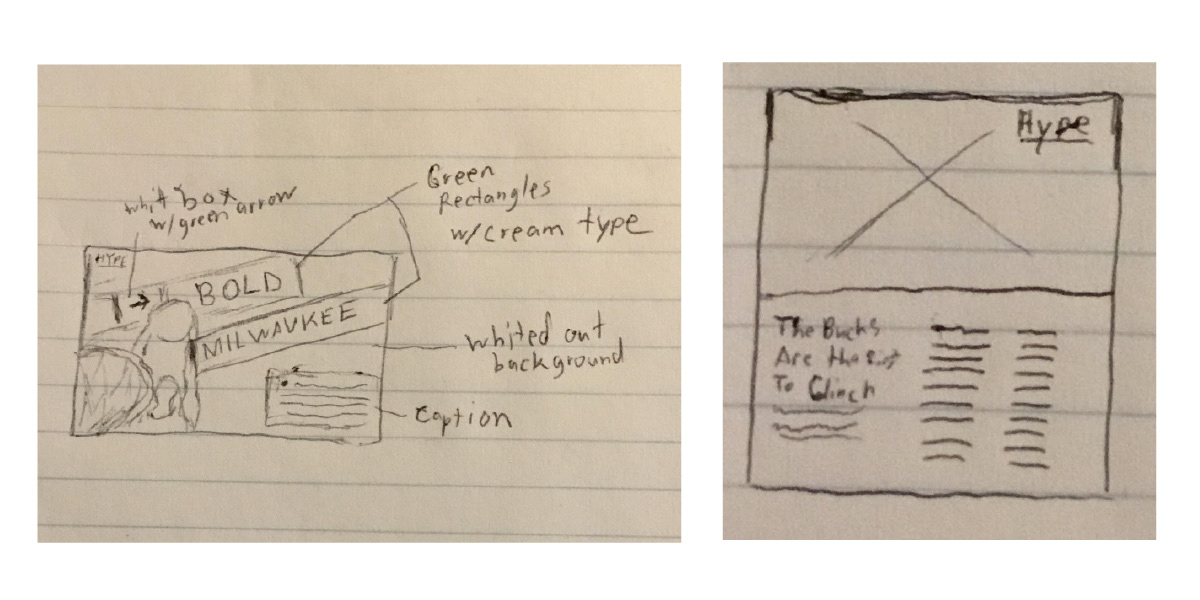 whit box
w/green arrow
Green
Rectangles
w/cream type
HYPE
BOLD
MILWAUKEE
whited out
background
Caption
Hype
The Bucks
Are the
To Clinch